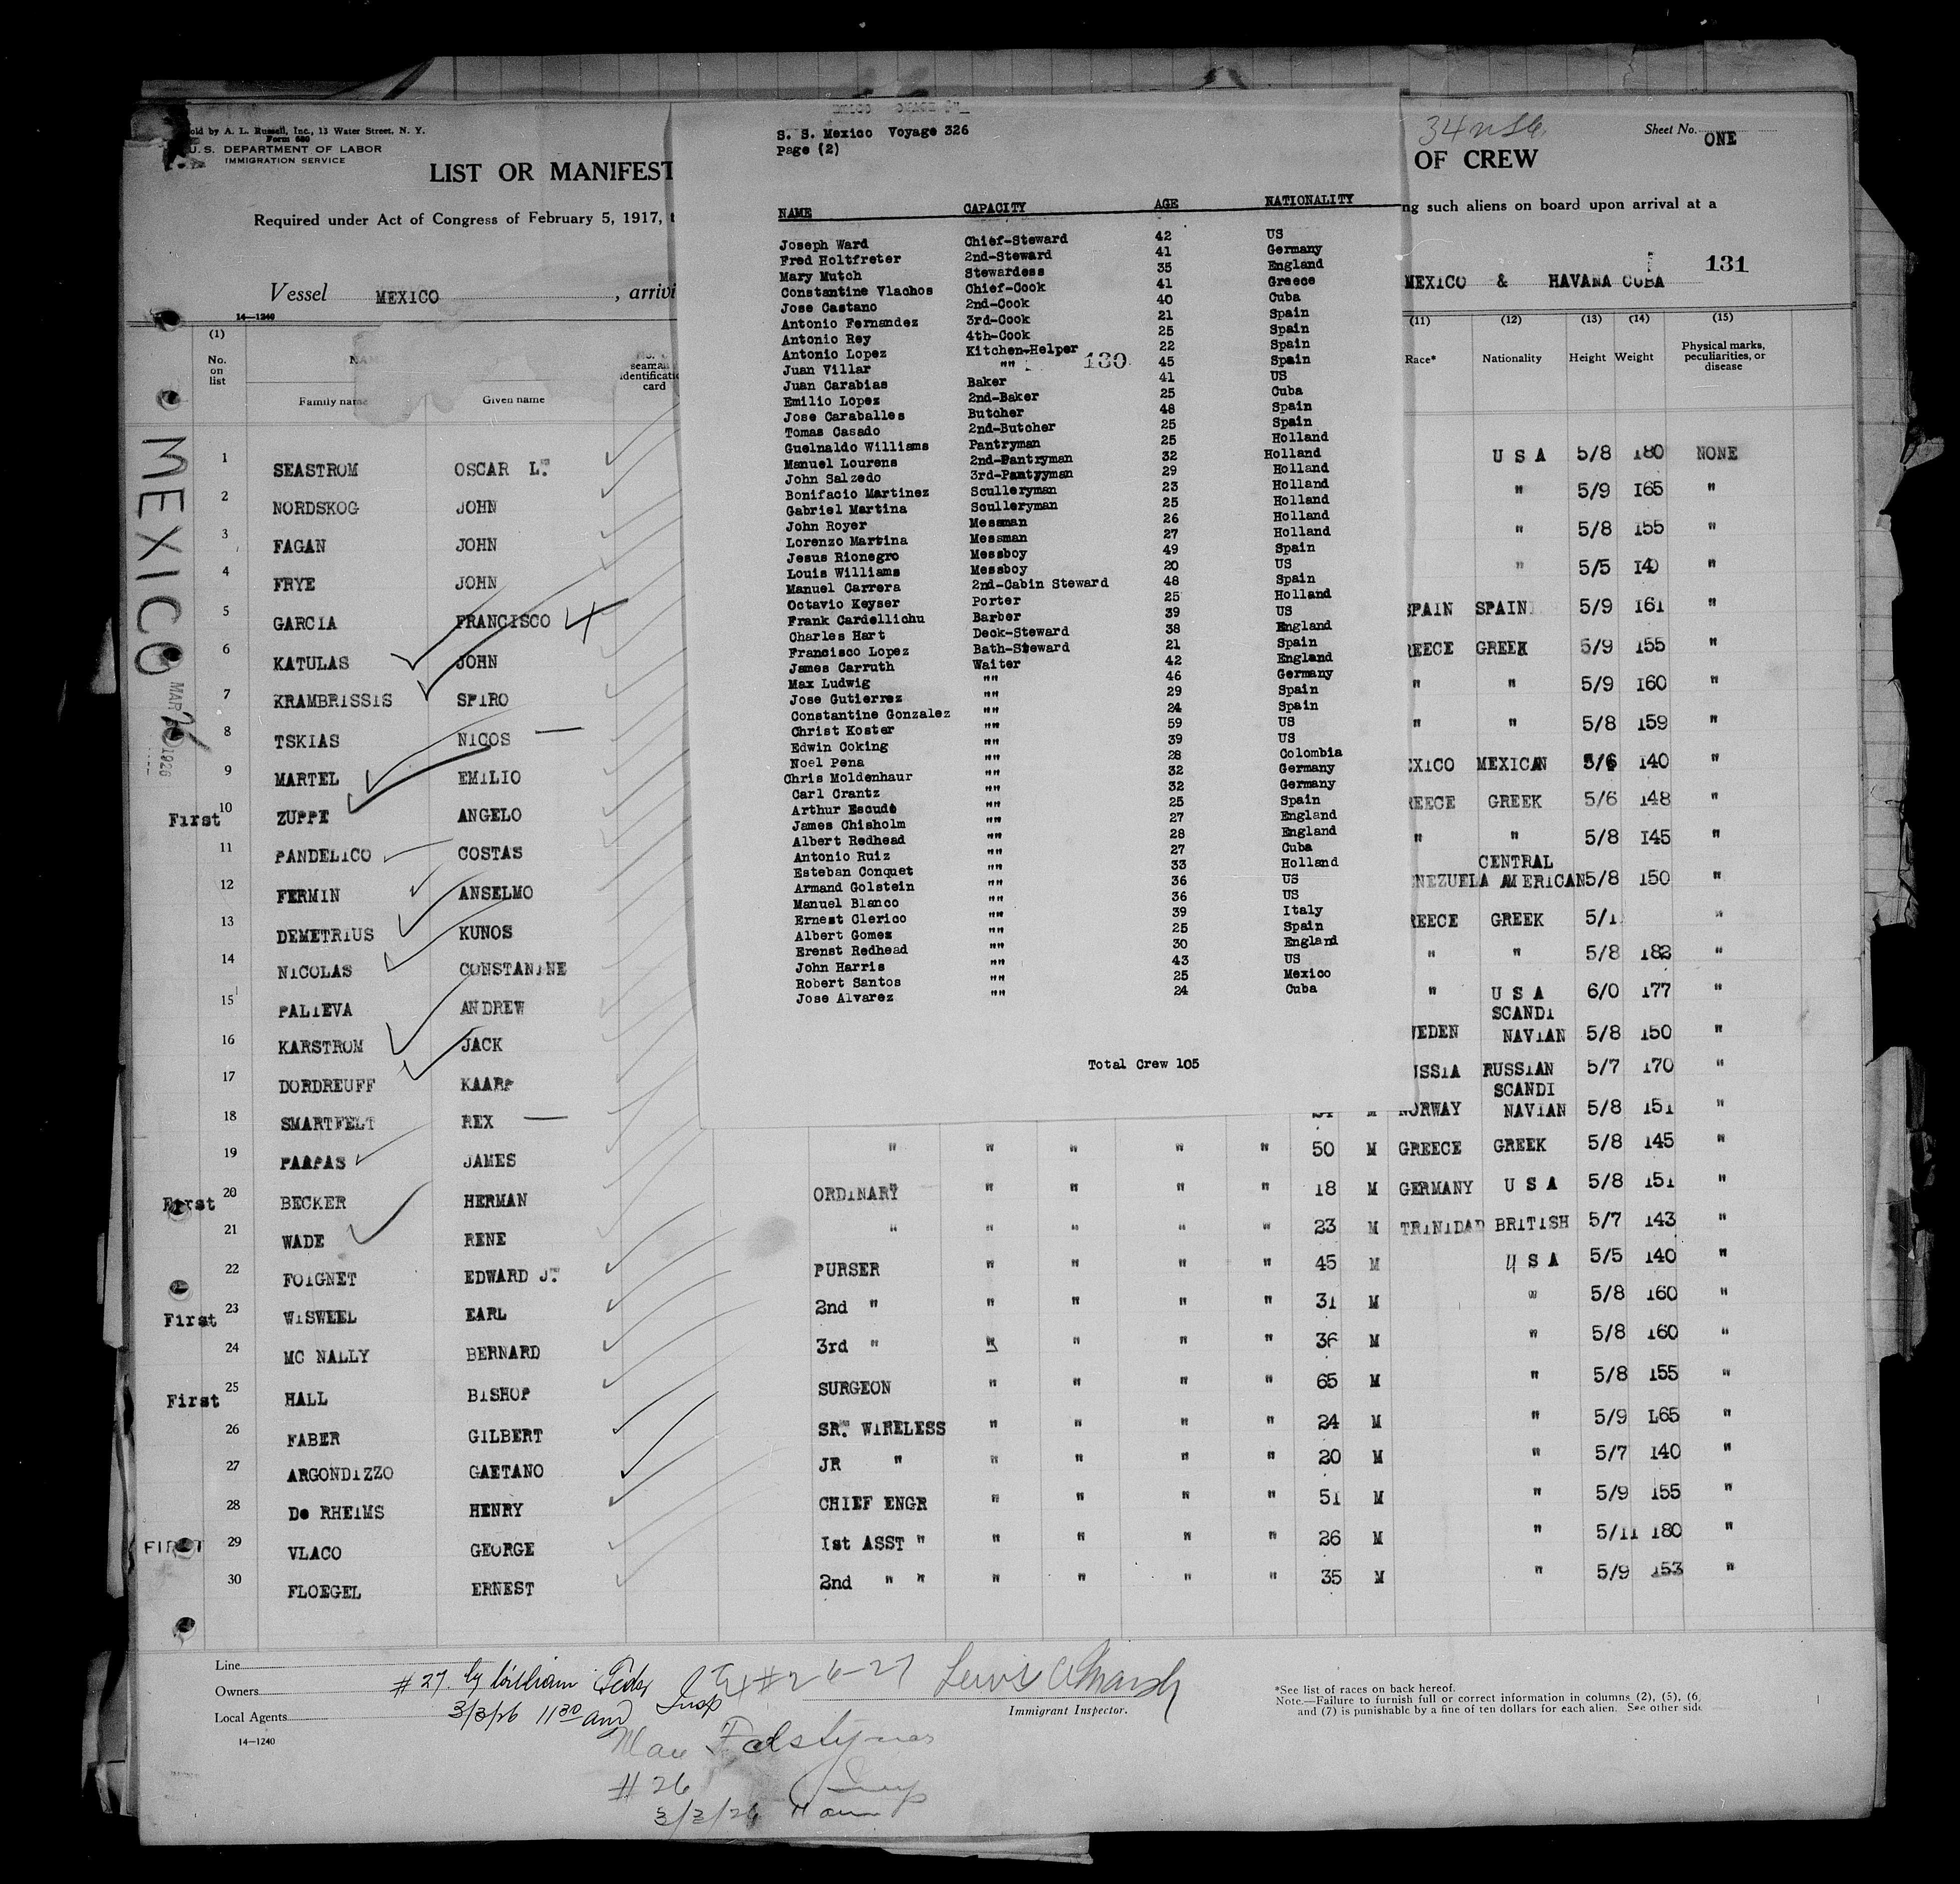 Sold by A. L. Russell, Inc., 13 Water Street, N. Y.
Form 680
U. S. DEPARTMENT OF LABOR
IMMIGRATION SERVICE
LIST OR MANIFEST
OF CREW
Sheet No. ONE
Required under Act of Congress of February 5, 1917,
ng such aliens on board upon arrival at a
131
Vessel MEXICO , arrivi
MEXICO & HAVANA CUBA
14—1240
S. S. Mexico Voyage 326
Page (2)
NAME CAPACITY AGE NATIONALITY
Joseph Ward Chief-Steward 42 US
Fred Holtfreter 2nd-Steward 41 Germany
Mary Mutch Stewardess 35 England
Constantine Vlachos Chief-Cook 41 Greece
Jose Castano 2nd-Cook 40 Cuba
Antonio Fernandez 3rd-Cook 21 Spain
Antonio Rey 4th-Cook 25 Spain
Antonio Lopez Kitchen-Helper 22 Spain
Juan Villar "" 45 Spain
130
Juan Carabias Baker 41 US
Emilio Lopez 2nd-Baker 25 Cuba
Jose Caraballes Butcher 48 Spain
Tomas Casado 2nd-Butcher 25 Spain
Guelnaldo Williams Pantryman 25 Holland
Manuel Lourens 2nd-Pantryman 32 Holland
John Salzedo 3rd-Pantyyman 29 Holland
Bonifacio Martinez Sculleryman 23 Holland
Gabriel Martina Sculleryman 25 Holland
John Royer Messman 26 Holland
Lorenzo Martina Messman 27 Holland
Jesus Rionegro Messboy 49 Spain
Louis Williams Messboy 20 US
Manuel Carrera 2nd-Cabin Steward 48 Spain
Octavio Keyser Porter 25 Holland
Frank Cardellichu Barber 39 US
Charles Hart Deck-Steward 38 England
Francisco Lopez Bath-Steward 21 Spain
James Carruth Waiter 42 England
Max Ludwig "" 46 Germany
Jose Gutierrez "" 29 Spain
Constantine Gonzalez "" 24 Spain
Christ Koster "" 59 US
Edwin Coking "" 39 US
Noel Pena "" 28 Colombia
Chris Moldenhaur "" 32 Germany
Carl Crantz "" 32 Germany
Arthur Escude "" 25 Spain
James Chisholm "" 27 England
Albert Redhead "" 28 England
Antonio Ruiz "" 27 Cuba
Esteban Conquet "" 33 Holland
Armand Golstein "" 36 US
Manuel Blanco "" 36 US
Ernest Clerico "" 39 Italy
Albert Gomez "" 25 Spain
Erenst Redhead "" 30 England
John Harris "" 43 US
Robert Santos "" 25 Mexico
Jose Alvarez "" 24 Cuba
Total Crew 105
(1) (11) (12) (13) (14) (15)
No. on list Family name Given name seaman identificatio card Race* Nationality Height Weight Physical marks, peculiarities, or disease
MEXICO
1 SEASTROM OSCAR L. U S A 5/8 180 NONE
2 NORDSKOG JOHN " 5/9 165 "
3 FAGAN JOHN " 5/8 155 "
4 FRYE JOHN " 5/5 140 "
5 GARCIA FRANCISCO SPAIN SPAIN 5/9 161 "
6 KATULAS JOHN REECE GREEK 5/9 155 "
7 KRAMBRISSIS SPIRO " " 5/9 160 "
8 TSKIAS NICOS " " 5/8 159 "
9 MARTEL EMILIO EXICO MEXICAN 5/6 140 "
First 10 ZUPPE ANGELO REECE GREEK 5/6 148 "
11 PANDELICO COSTAS " " 5/8 145 "
12 FERMIN ANSELMO ENEZUELA CENTRAL AMERICAN 5/8 150 "
13 DEMETRIUS KUNOS REECE GREEK 5/1 "
14 NICOLAS CONSTANINE " " 5/8 182 "
15 PALIEVA ANDREW " U S A 6/0 177 "
16 KARSTROM JACK WEDEN SCANDI NAVIAN 5/8 150 "
17 DORDREUFF KAARP USSIA RUSSIAN 5/7 170 "
18 SMARTFELT REX M NORWAY SCANDI NAVIAN 5/8 151 "
19 PAAPAS JAMES " " " " " 50 M GREECE GREEK 5/8 145 "
First 20 BECKER HERMAN ORDINARY " " " " 18 M GERMANY U S A 5/8 151 "
21 WADE RENE " " " " " 23 M TRINIDAD BRITISH 5/7 143 "
22 FOIGNET EDWARD J. PURSER " " " " 45 M U S A 5/5 140 "
First 23 WISWEEL EARL 2nd " " " " " 31 M " 5/8 160 "
24 MC NALLY BERNARD 3rd " " " " " 36 M " 5/8 160 "
First 25 HALL BISHOP SURGEON " " " " 65 M " 5/8 155 "
26 FABER GILBERT SR. WIRELESS " " " " 24 M " 5/9 165 "
27 ARGONDIZZO GAETANO JR " " " " " 20 M " 5/7 140 "
28 De RHEIMS HENRY CHIEF ENGR " " " " 51 M " 5/9 155 "
FIRST 29 VLACO GEORGE 1st ASST " " " " " 26 M " 5/11 180 "
30 FLOEGEL ERNEST 2nd " " " " " " 35 M " 5/9 153 "
Line
Owners
Local Agents
14—1240
#27. by William
3/3/26 11 30 am Insp
#26-27
Immigrant Inspector.
#26
3/3/26 11 am
*See list of races on back hereof.
Note.—Failure to furnish full or correct information in columns (2), (5), (6,
and (7) is punishable by a fine of ten dollars for each alien. See other side